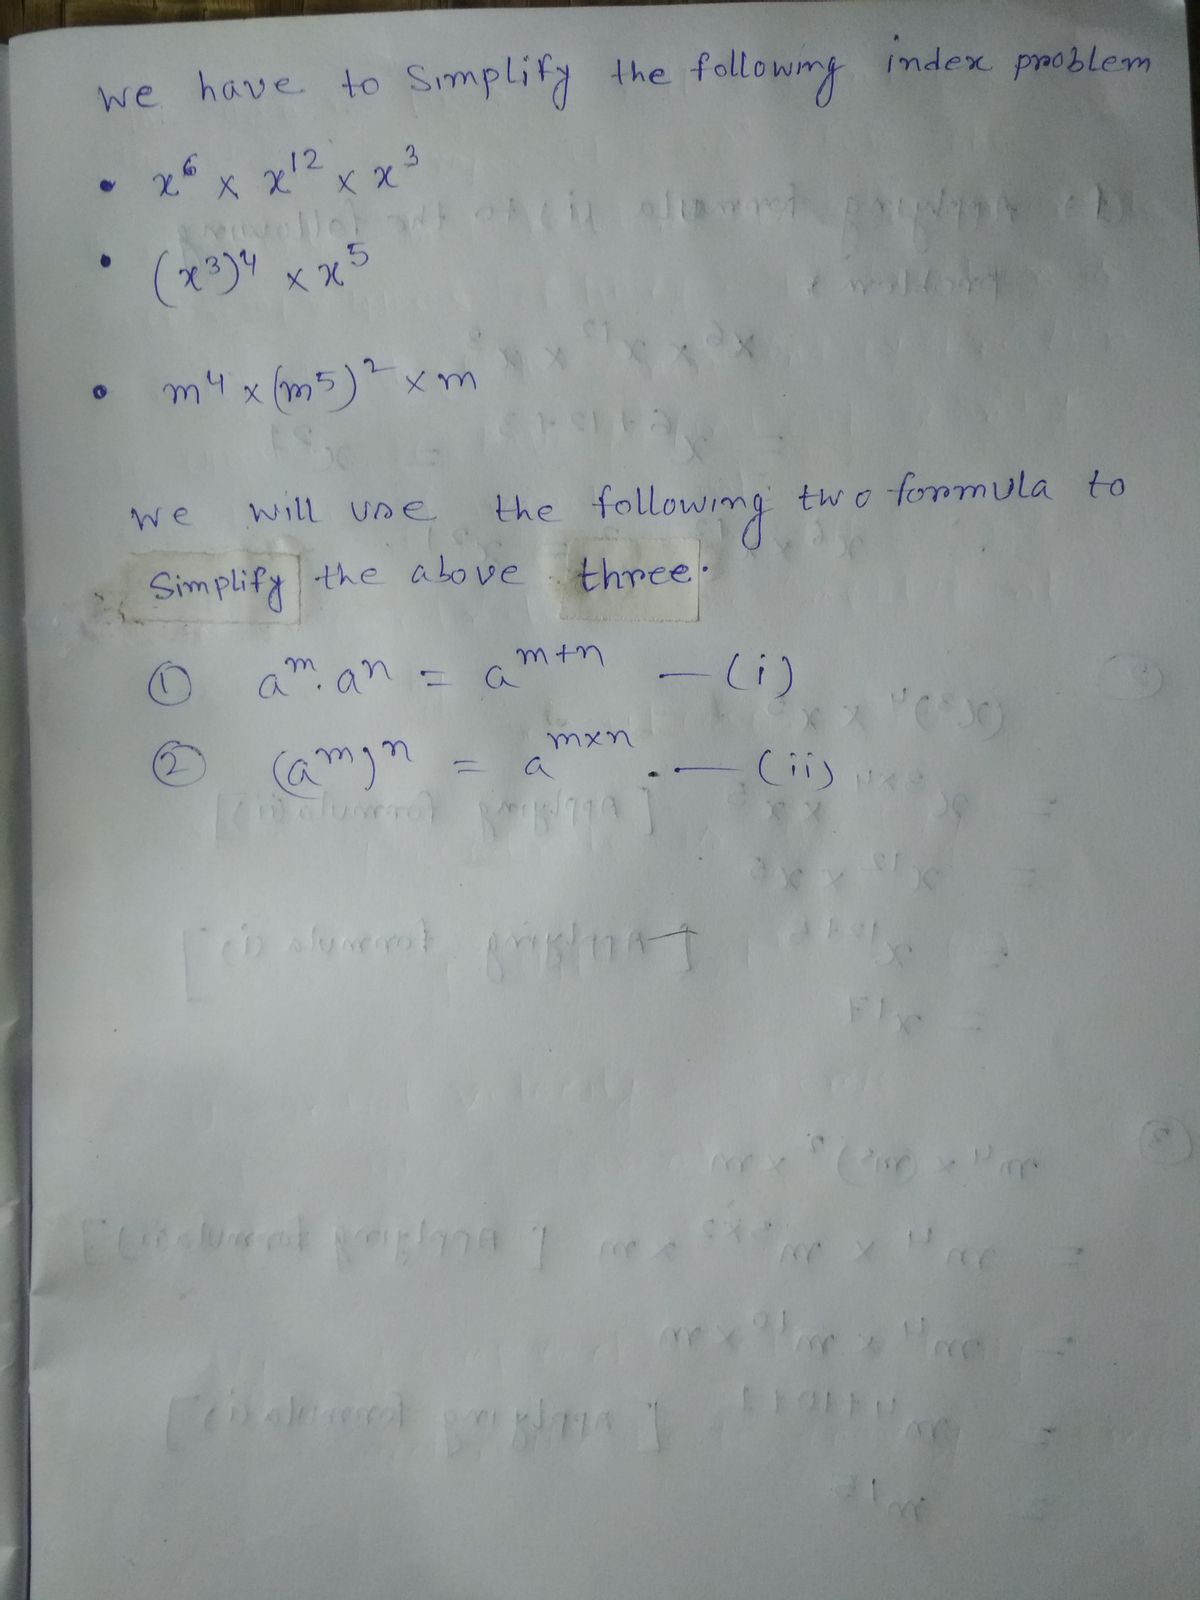 we have to simplify the following index problem
• x⁶ × x¹² × x³
• (x³)⁴ × x⁵
• m⁴ × (m⁵)² × m
we will use the following two formula to
simplify the above three.
① aᵐ. aⁿ = aᵐ⁺ⁿ — (i)
② (aᵐ)ⁿ = aᵐˣⁿ. — (ii)